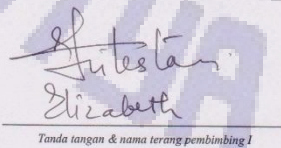 Elizabeth
Tanda tangan & nama terang pembimbing I